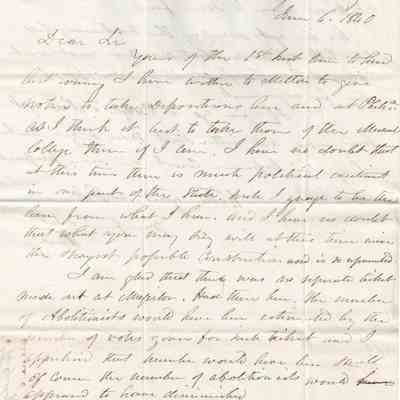 June 6. 1840
Dear Sir
Yours of the 1st inst came to hand
last evening I have written to Mutton to give
notice to take Depositions here and at Phila
as I think it best to take them of the Medical
college there if I can. I have no doubt that
at this time there is much political excitement
in our part of the State, such I judge to be the
case from what I hear. and I have no doubt
that what you may say will at this time receive
the strongest possible construction and is repeated
I am glad that there was no separate ticket
made out at Had there been the number
of Abolitionists would have been estimated by the
number of votes given for such ticket and I
apprehend that number would have been small
of course the number of abolitionists would have
appeared to have diminished